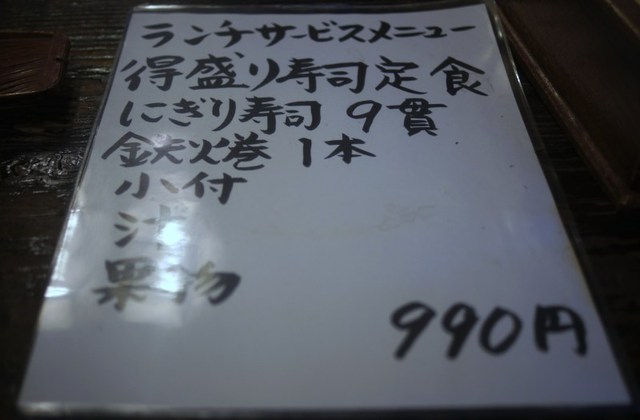 ランチサービスメニュー
得盛り寿司定食
にぎり寿司 9貫
鉄火巻 1本
小付
汁
果物
990円